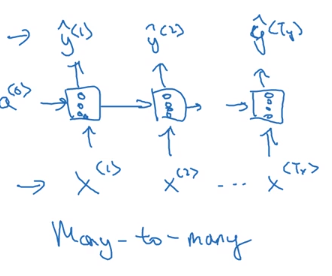 → ŷ<1> ŷ<2> ŷ<Ty>
a<0>
→ x<1> x<2> ... x<Tx>
Many-to-many